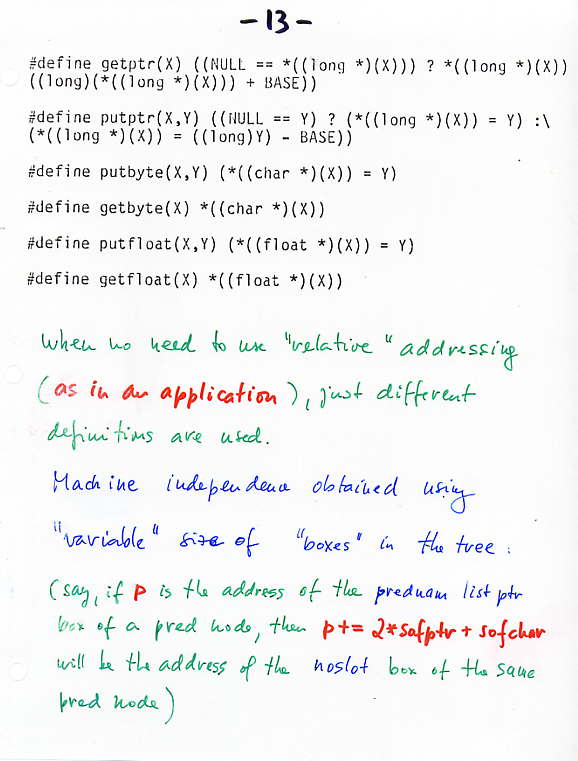 -13-
#define getptr(X) ((NULL == *((long *)(X))) ? *((long *)(X))
((long)(*((long *)(X))) + BASE))
#define putptr(X,Y) ((NULL == Y) ? (*((long *)(X)) = Y) :\
(*((long *)(X)) = ((long)Y) - BASE))
#define putbyte(X,Y) (*((char *)(X)) = Y)
#define getbyte(X) *((char *)(X))
#define putfloat(X,Y) (*((float *)(X)) = Y)
#define getfloat(X) *((float *)(X))
When no need to use "relative" addressing
(as in an application), just different
definitions are used.
Machine independence obtained using
"variable" size of "boxes" in the tree.
(say, if p is the address of the prednam list ptr
box of a pred node, then p+= 2*sofptr + sofchar
will be the address of the noslot box of the same
pred node)